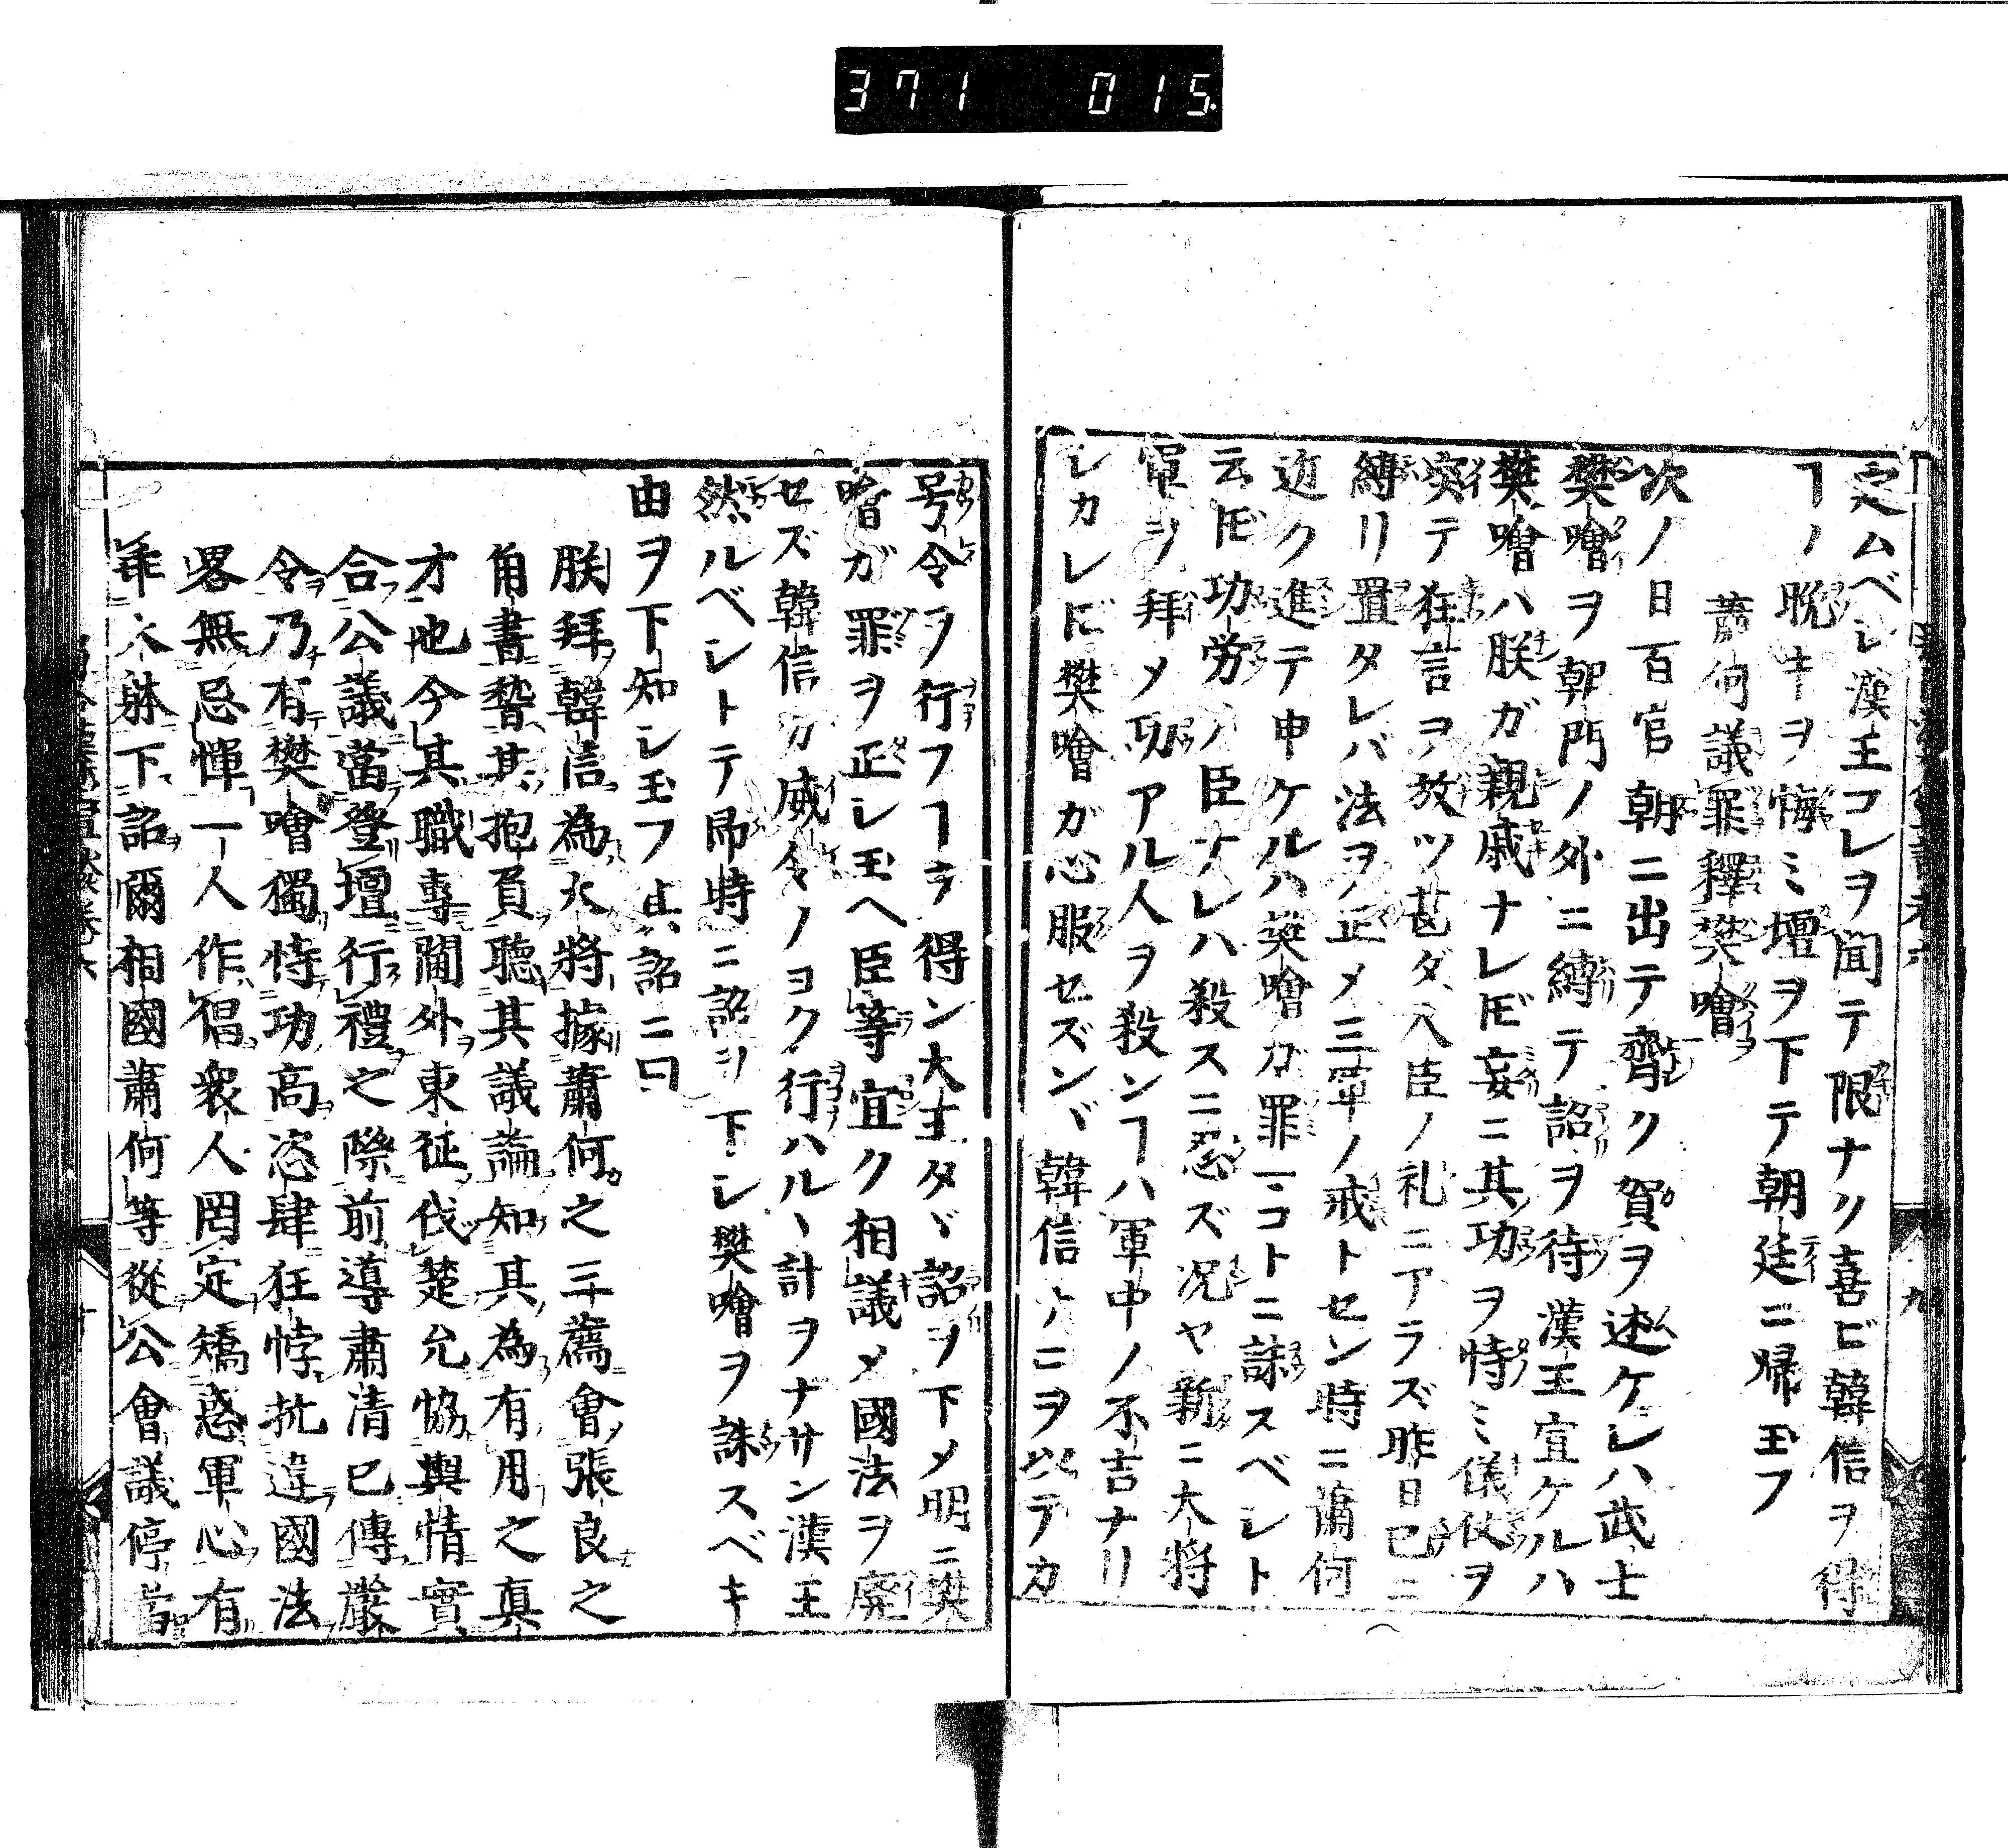 371 015
定ムベシ漢王コレヲ聞テ限ナク喜ビ韓信ヲ得
ヿノ晩キヲ悔ミ壇ヲ下テ朝廷ニ帰玉フ
蕭何議罪釋樊噲
次ノ日百官朝ニ出テ齊ク賀ヲ述ケレハ武士
樊噲ヲ朝門ノ外ニ縛テ詔ヲ待漢王宣ケルハ
樊噲ハ朕ガ親戚ナレ𪜈妄ニ其功ヲ恃ミ儀仗ヲ
突テ狂言ヲ放ツ甚ダ人臣ノ礼ニアラズ昨日已ニ
縛リ置タレバ法ヲ正メ三軍ノ戒トセン時ニ蕭何
近ク進テ申ケルハ樊噲ガ罪一コトニ誅スベシト
云𪜈功労ノ臣ナレハ殺スニ忍ズ況ヤ新ニ大将
軍ヲ拜メ功アル人ヲ殺ンヿハ軍中ノ不吉ナリ
シカレ𪜈樊噲ガ心服セズンバ韓信ナニヲ以テカ
号令ヲ行フヿヲ得ン大王タヾ詔ヲ下メ明ニ樊
噲ガ罪ヲ正シ玉ヘ臣等宜ク相議メ國法ヲ廃
セズ韓信ガ威令ノヨク行ハルヽ計ヲナサン漢王
然ルベシトテ即時ニ詔ヲ下シ樊噲ヲ誅スベキ
由ヲ下知シ玉フ其詔ニ曰
朕拜韓信為大將據蕭何之三薦會張良之
角書暬其抱負聽其議論知其為有用之真
才也今其職專閫外東征伐楚允協輿情實
合公議當登壇行禮之際前導肅清已傳嚴
令乃有樊噲獨恃功高恣肆狂悖抗違國法
畧無忌憚一人作倡衆人罔定矯惑軍心有
乖大躰下詔爾相國蕭何等從公會議停當